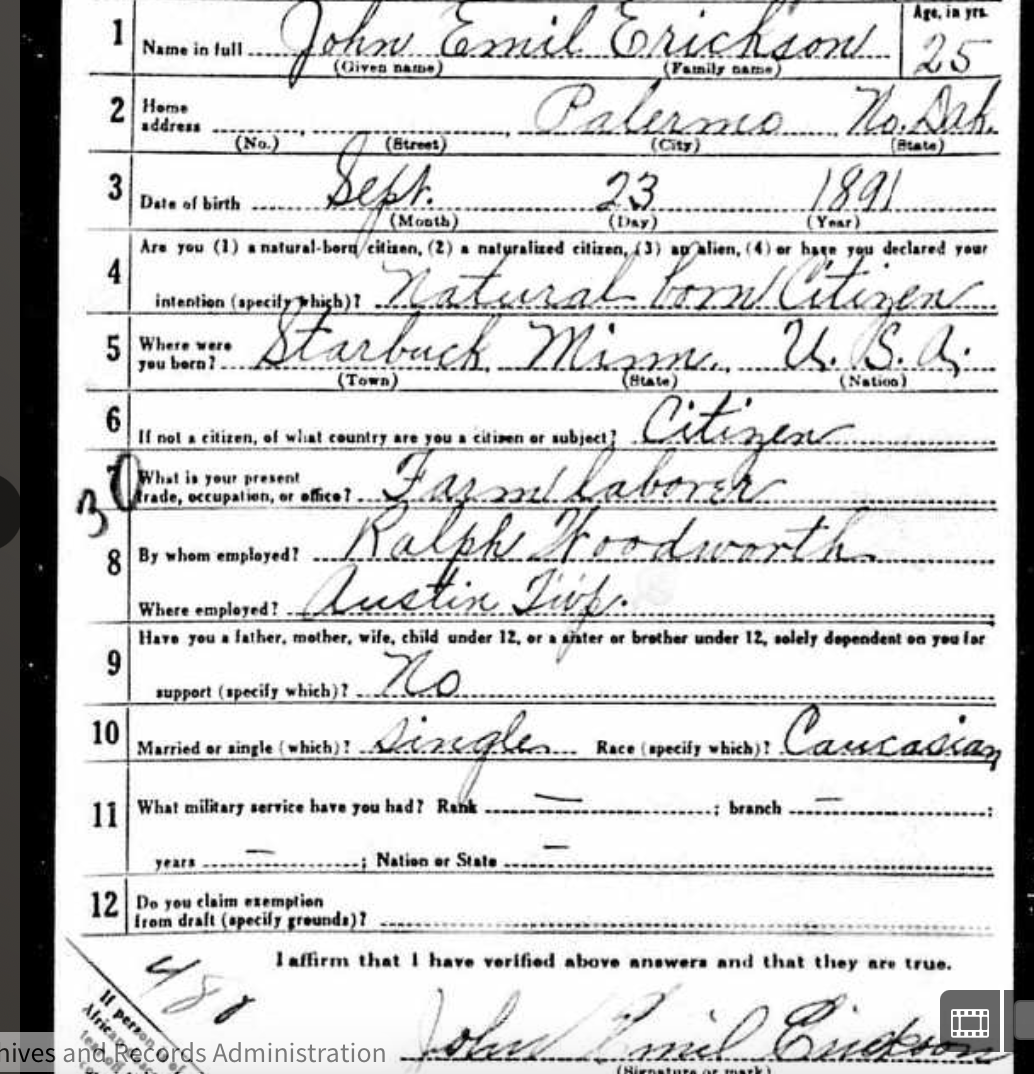 Age, in yrs.
1 Name in full John Emil Erickson 25
(Given name) (Family name)
2 Home
address Palermo No. Dak.
(No.) (Street) (City) (State)
3 Date of birth Sept. 23 1891
(Month) (Day) (Year)
Are you (1) a natural-born citizen, (2) a naturalized citizen, (3) an alien, (4) or have you declared your
4 intention (specify which)? Natural born Citizen
5 Where were
you born? Starbuck Minn. U. S. A.
(Town) (State) (Nation)
6 If not a citizen, of what country are you a citizen or subject? Citizen
7 What is your present
trade, occupation, or office? Farm laborer
8 By whom employed? Ralph Woodworth
Where employed? Austin Twp.
Have you a father, mother, wife, child under 12, or a sister or brother under 12, solely dependent on you for
9 support (specify which)? No
10 Married or single (which)? single Race (specify which)? Caucasian
11 What military service have you had? Rank — ; branch — ;
years — ; Nation or State —
12 Do you claim exemption
from draft (specify grounds)?
I affirm that I have verified above answers and that they are true.
If person
of
hives and Records Administration
John Emil Erickson
(Signature or mark)